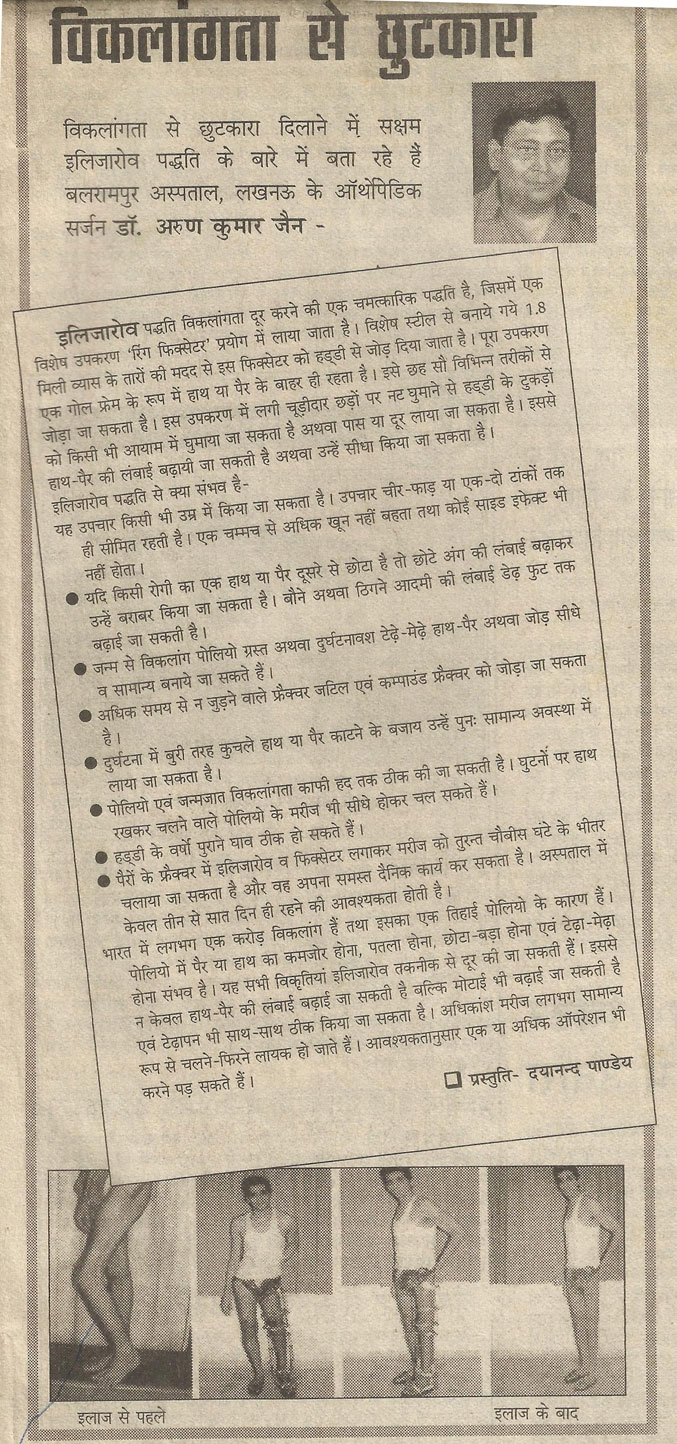 विकलांगता से छुटकारा
विकलांगता से छुटकारा दिलाने में सक्षम
इलिजारोव पद्धति के बारे में बता रहे हैं
बलरामपुर अस्पताल, लखनऊ के ऑर्थोपेडिक
सर्जन डॉ. अरुण कुमार जैन -
इलिजारोव पद्धति विकलांगता दूर करने की एक चमत्कारिक पद्धति है, जिसमें एक
विशेष उपकरण ‘रिंग फिक्सेटर’ प्रयोग में लाया जाता है। विशेष स्टील से बनाये गये 1.8
मिली व्यास के तारों की मदद से इस फिक्सेटर को हड्डी से जोड़ दिया जाता है। पूरा उपकरण
एक गोल फ्रेम के रूप में हाथ या पैर के बाहर ही रहता है। इसे छह सौ विभिन्न तरीकों से
जोड़ा जा सकता है। इस उपकरण में लगी चूड़ीदार छड़ों पर नट घुमाने से हड्डी के टुकड़ों
को किसी भी आयाम में घुमाया जा सकता है अथवा पास या दूर लाया जा सकता है। इससे
हाथ-पैर की लंबाई बढ़ायी जा सकती है अथवा उन्हें सीधा किया जा सकता है।
इलिजारोव पद्धति से क्या संभव है-
यह उपचार किसी भी उम्र में किया जा सकता है। उपचार चीर-फाड़ या एक-दो टांकों तक
ही सीमित रहती है। एक चम्मच से अधिक खून नहीं बहता तथा कोई साइड इफेक्ट भी
नहीं होता।
● यदि किसी रोगी का एक हाथ या पैर दूसरे से छोटा है तो छोटे अंग की लंबाई बढ़ाकर
उन्हें बराबर किया जा सकता है। बौने अथवा ठिगने आदमी की लंबाई डेढ़ फुट तक
बढ़ाई जा सकती है।
● जन्म से विकलांग पोलियो ग्रस्त अथवा दुर्घटनावश टेढ़े-मेढ़े हाथ-पैर अथवा जोड़ सीधे
व सामान्य बनाये जा सकते हैं।
● अधिक समय से न जुड़ने वाले फ्रैक्चर जटिल एवं कम्पाउंड फ्रैक्चर को जोड़ा जा सकता
है।
● दुर्घटना में बुरी तरह कुचले हाथ या पैर काटने के बजाय उन्हें पुनः सामान्य अवस्था में
लाया जा सकता है।
● पोलियो एवं जन्मजात विकलांगता काफी हद तक ठीक की जा सकती है। घुटनों पर हाथ
रखकर चलने वाले पोलियो के मरीज भी सीधे होकर चल सकते हैं।
● हड्डी के वर्षों पुराने घाव ठीक हो सकते हैं।
● पैरों के फ्रैक्चर में इलिजारोव व फिक्सेटर लगाकर मरीज को तुरन्त चौबीस घंटे के भीतर
चलाया जा सकता है और वह अपना समस्त दैनिक कार्य कर सकता है। अस्पताल में
केवल तीन से सात दिन ही रहने की आवश्यकता होती है।
भारत में लगभग एक करोड़ विकलांग हैं तथा इसका एक तिहाई पोलियो के कारण हैं।
पोलियो में पैर या हाथ का कमजोर होना, पतला होना, छोटा-बड़ा होना एवं टेढ़ा-मेढ़ा
होना संभव है। यह सभी विकृतियां इलिजारोव तकनीक से दूर की जा सकती हैं। इससे
न केवल हाथ-पैर की लंबाई बढ़ाई जा सकती है बल्कि मोटाई भी बढ़ाई जा सकती है
एवं टेढ़ापन भी साथ-साथ ठीक किया जा सकता है। अधिकांश मरीज लगभग सामान्य
रूप से चलने-फिरने लायक हो जाते हैं। आवश्यकतानुसार एक या अधिक ऑपरेशन भी
करने पड़ सकते हैं।
❑ प्रस्तुति- दयानन्द पाण्डेय
इलाज से पहले
इलाज के बाद